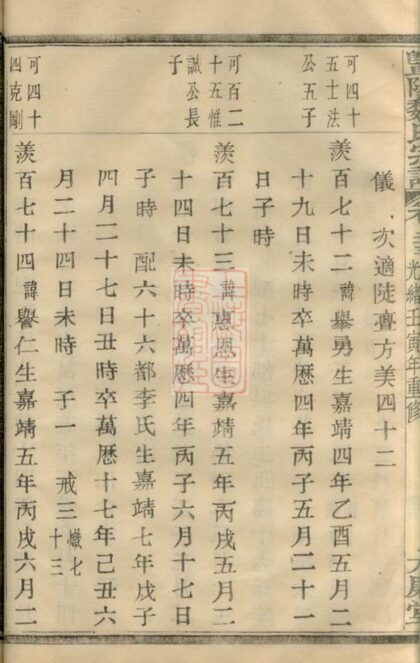 光緒壬寅年重修
儀 次適陡亹方美四十二
可四十五士法公五子
羨百七十二諱舉勇生嘉靖四年乙酉五月二
十九日未時卒萬歷四年丙子五月二十一
日子時
可百二十五惟誠公長子
羨百七十三諱惠恩生嘉靖五年丙戌五月二
十四日未時卒萬歷四年丙子六月十七日
子時 配六十六都李氏生嘉靖七年戊子
四月二十七日丑時卒萬歷十七年己丑六
月二十四日未時 子一 戒三 懺七十三
可四十四克剛
羨百七十四諱譽仁生嘉靖五年丙戌六月二